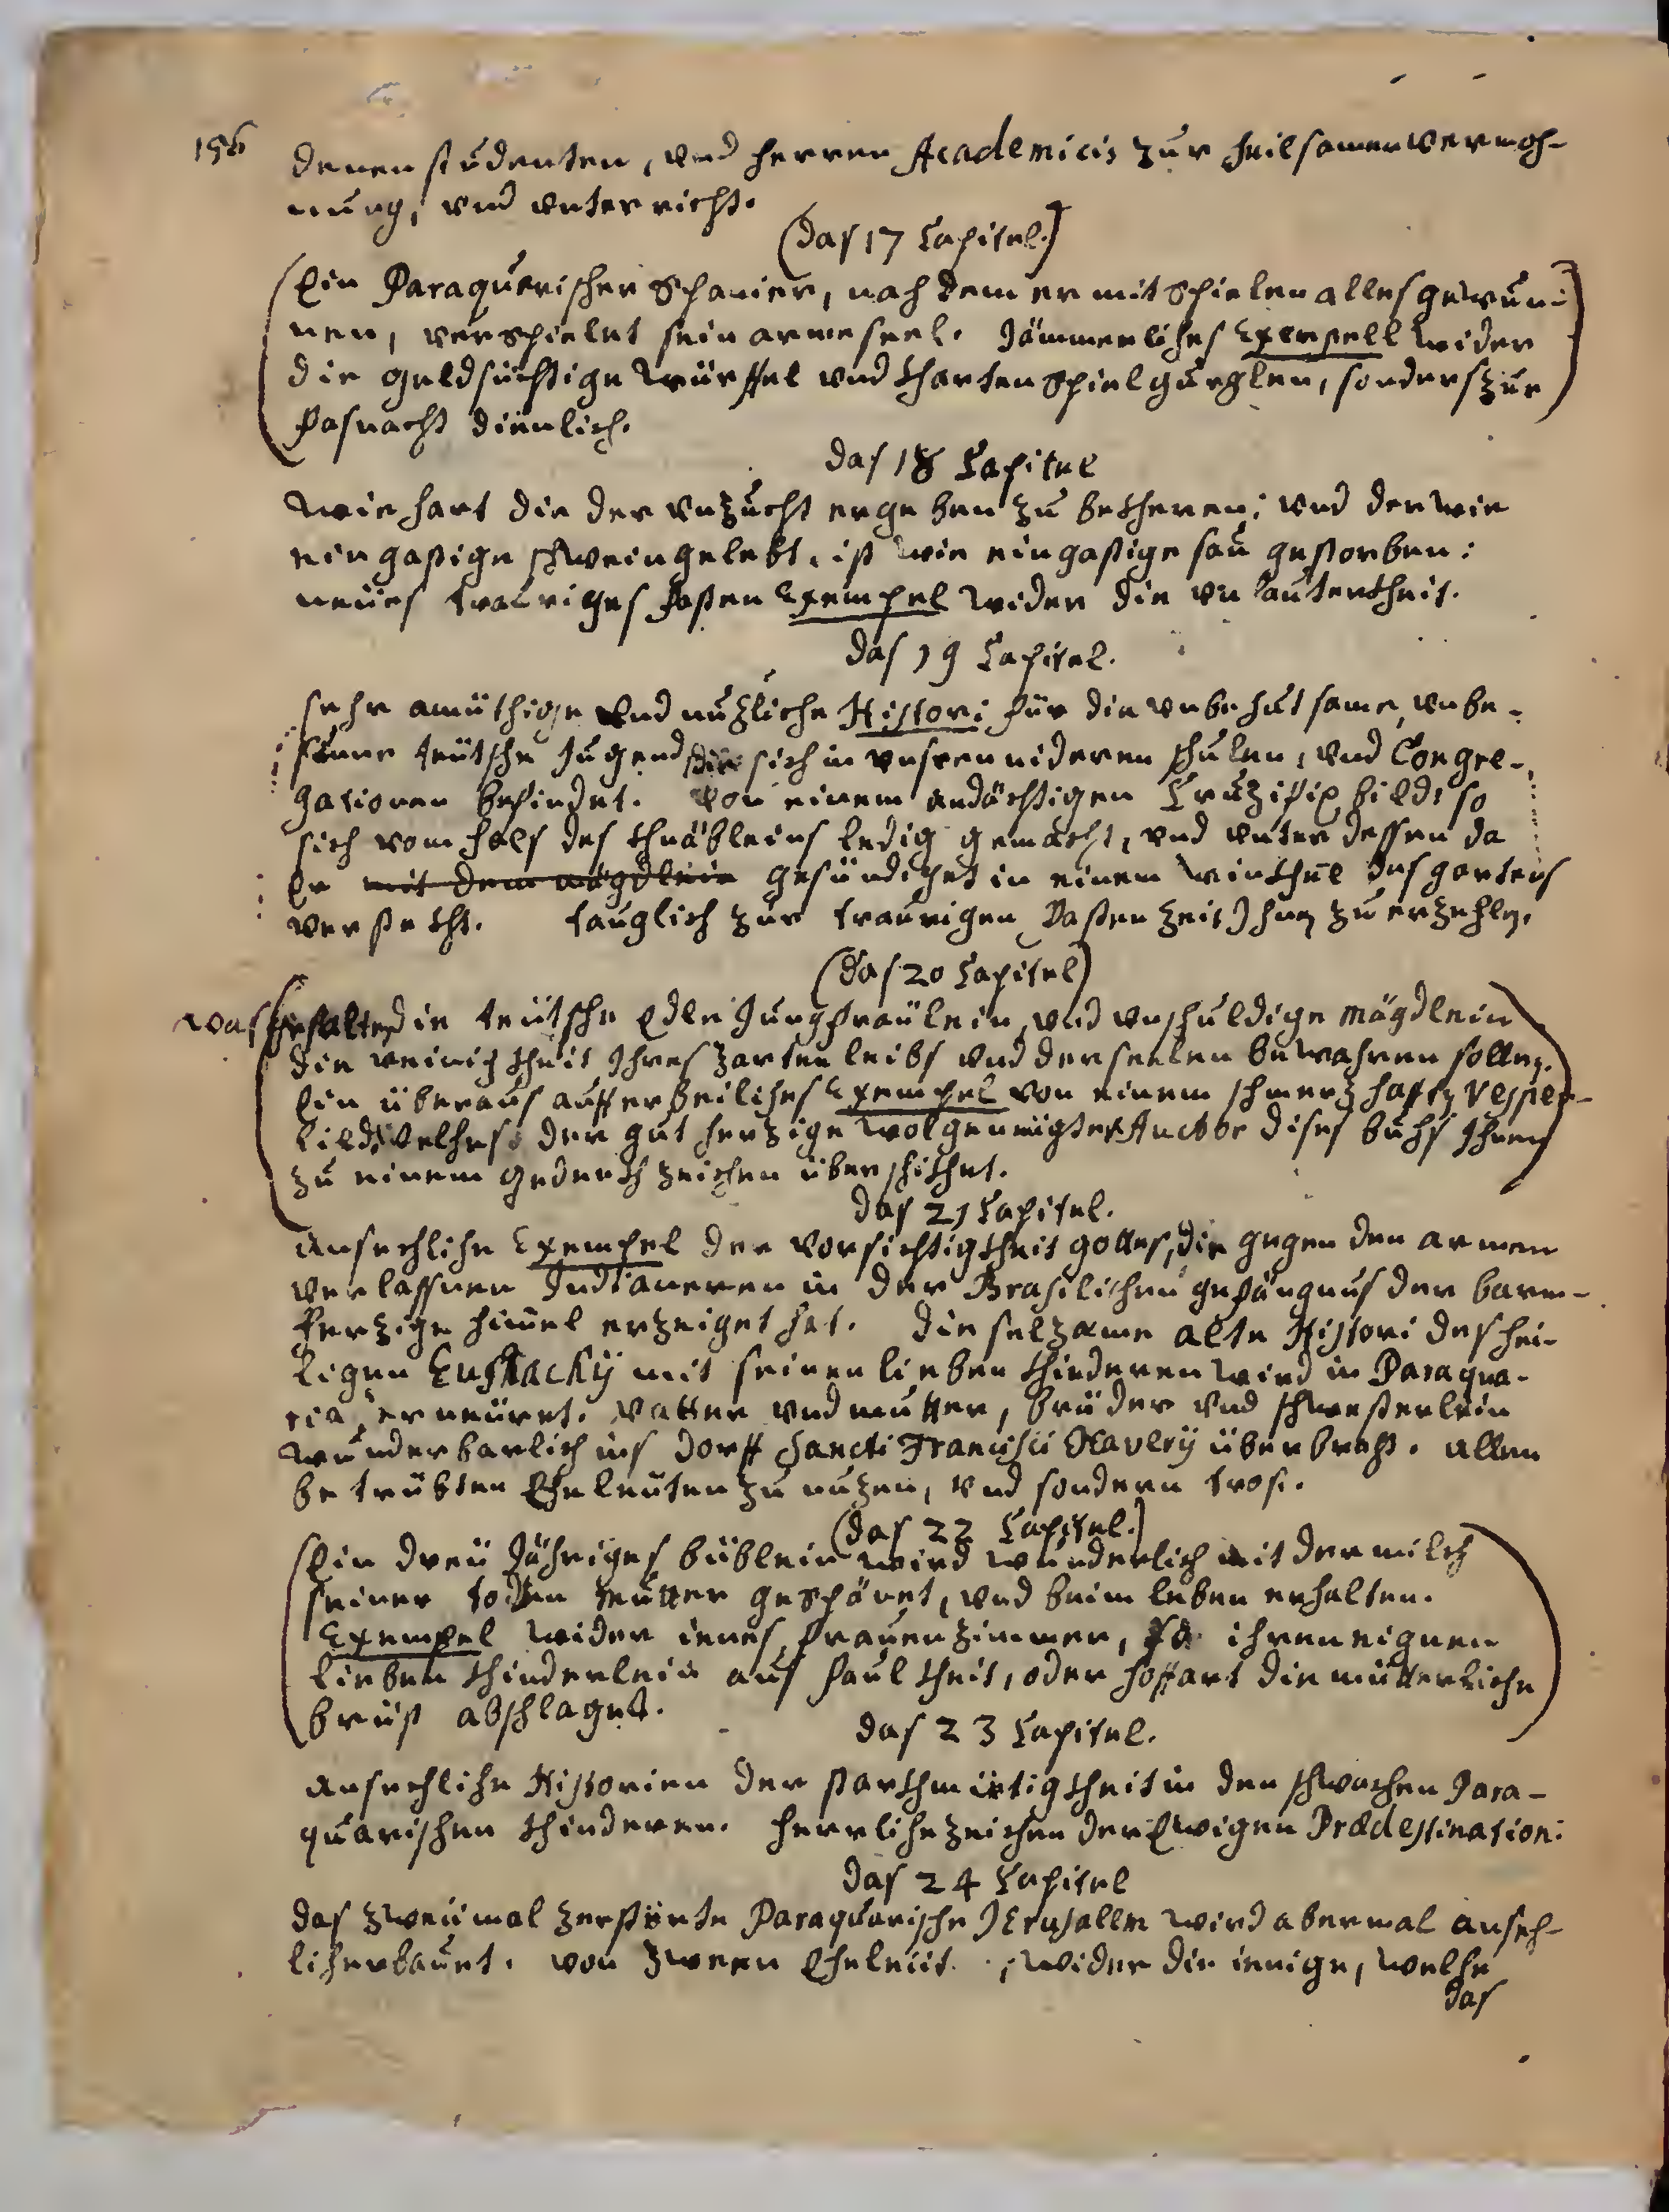 156
denen studenten, vnd herren Academicis zur heilsamen vermah-
nung, vnd vnterricht.
(das 17 Capitel.)
(Ein Paraquerischer Spanier, nach dem er mit spielen alles gewun-
nen, verspielet sein arme seel. Jämmerliches Exempell wider
die geldsüchtige würffel vnd khartenspielgurglen, sonders zur
fasnacht dienlich.
das 18 Capitel
wie hart die der vnzucht ergeben zu bekheren; vnd der wie
ein gastige schwein gelebt, ist wie ein gastige sau gestorben:
neues trauriges fasten Exempel wider die vnlauterkheit.
das 19 Capitel.
sehr amüthige vnd nuzliche Histori für die vnbehutsame, vnbe-
sunne teütsche Jugend, die sich in vnsren nideren schulen, vnd Congre-
gationen befindet. von einem andächtigen Cruzifix bild: so
sich vom hals des khnäbleins ledig gemacht, vnd vnter dessen da
Er mit dem mägdlein gesündiget in einem winkhel des gartens
verstekht. tauglich zur traurigen Fasten zeit Jhnen zu erzehlen.
(das 20 Capitel)
was gestalten die teütsche Edle Jungfräulein, vnd vnschuldige mägdlein
die reinigkheit Jhres zarten leibs vnd der seelen bewahren sollen.
Ein überaus aufferbeiliches Exempel von einem schmerzhafften vesper-
bild, welches der gut herzige wolgeneigter Auctor dises buchs Jhnen
zu einem gedenkhzeichen überschikhet.
das 21 Capitel.
Ansechliche Exempel der vorsichtigkheit gottes, die gegen den armen
verlassnen Indianeren in der Brasilischen gefängnus der barm-
herzige himel erzeiget hat. die selzame alte Histori des hei-
ligen Eustachÿ mit seinen lieben khinderen wird in Paraqua-
ria erneüret. Vatter vnd mutter, brüder vnd schwesterlein
wunderbarlich ins dorff Sancti Francisci Xaverÿ überbracht. allen
betrübten Eheleüten zu nuzen, vnd sondern trost.
(das 22 Capitel.)
(Ein dreü Jähriges büblein wird wunderlich mit der milch
seiner todten mutter gespäret, vnd beim leben erhalten.
Exempel wider ienes frauenzimmer, so ihren eignen
lieben khinderlein aus faulkheit, oder hoffart die mütterliche
brüst abschlaget.
das 23 Capitel.
Ansechliche Historien der starkhmütigkheit in den schwachen Para-
quarischen khinderen. herrliche zeichen der Ewigen Prædestination.
das 24 Capitel
das zweimal zerstörte Paraquarische JErusallem wird abermal anseh-
lich erbauet. von zween Eheleüt. wider die ienige, welche
das